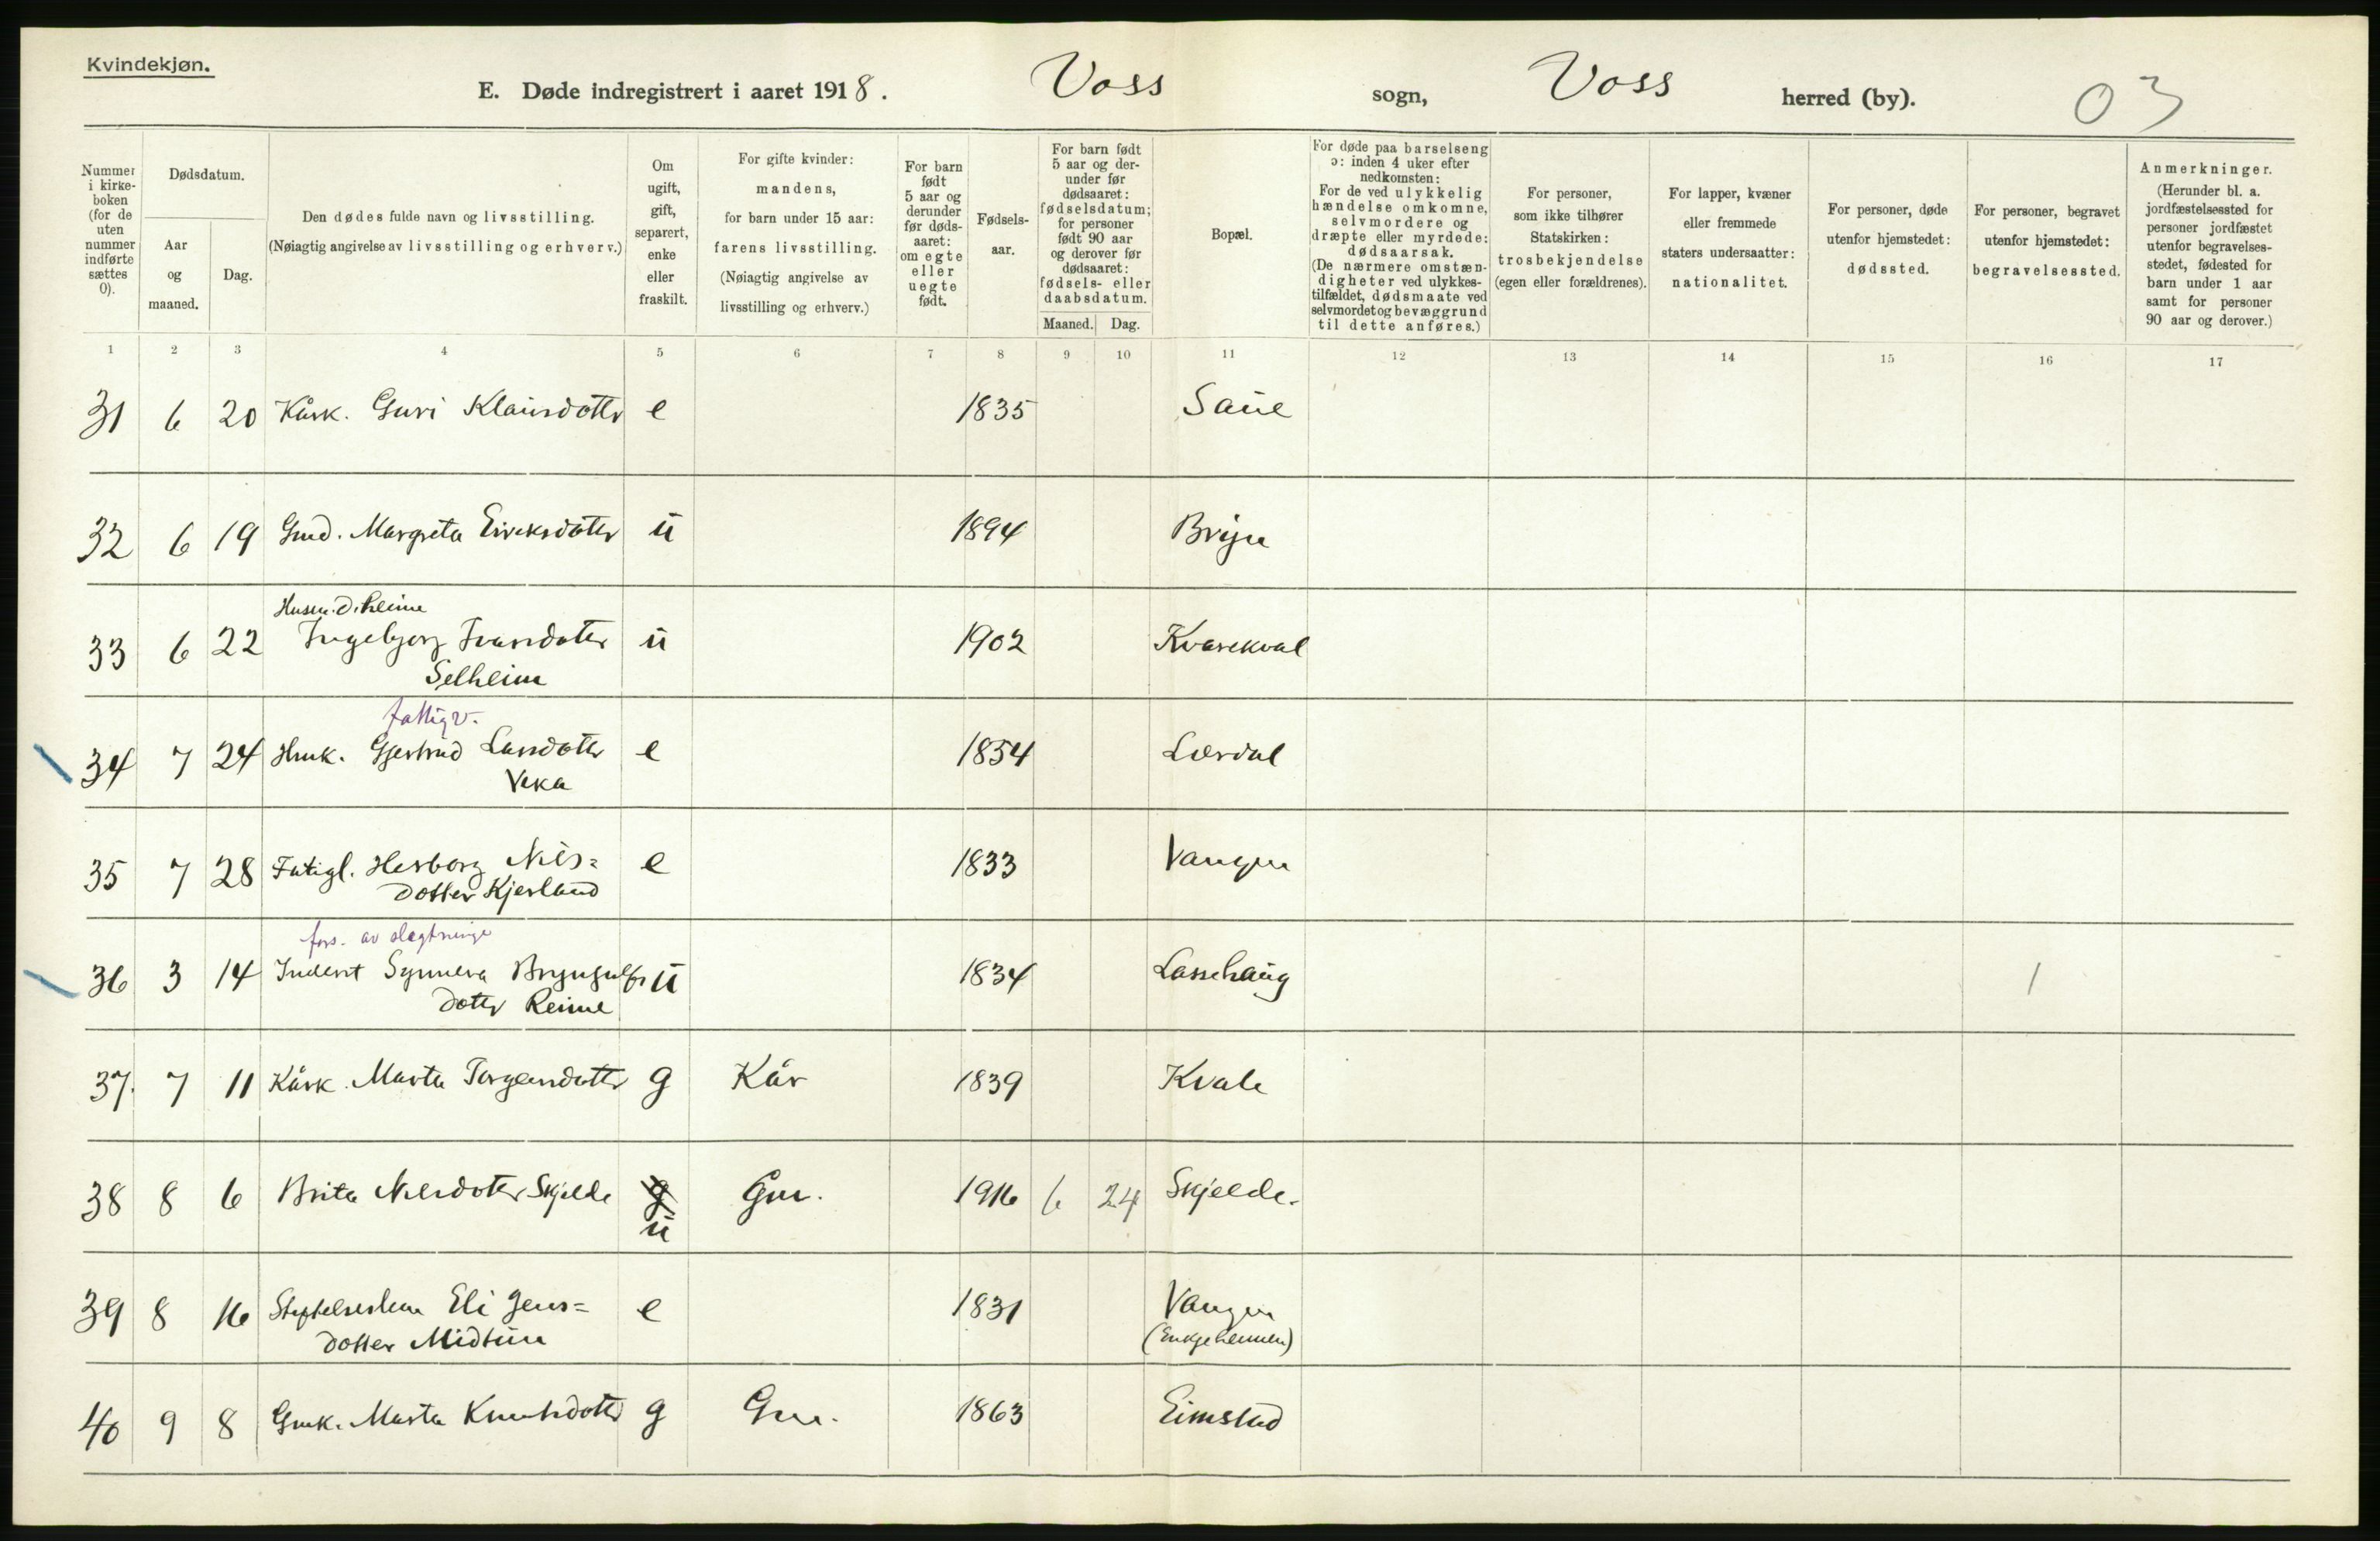 Kvindekjøn.
E. Døde indregistrert i aaret 1918. Voss sogn, Voss herred (by). 03
Nummer i kirkeboken (for de uten nummer indførte sættes 0).
Dødsdatum.
Aar og maaned.
Dag.
Den dødes fulde navn og livsstilling.
(Nøiagtig angivelse av livsstilling og erhverv.)
Om ugift, gift, separert, enke eller fraskilt.
For gifte kvinder: mandens, for barn under 15 aar: farens livsstilling.
(Nøiagtig angivelse av livsstilling og erhverv.)
For barn født 5 aar og derunder før dødsaaret: om egte eller uegte født.
Fødselsaar.
For barn født 5 aar og derunder før dødsaaret: fødselsdatum; for personer født 90 aar og derover før dødsaaret: fødsels- eller daabsdatum.
Maaned. Dag.
Bopæl.
For døde paa barselseng ɔ: inden 4 uker efter nedkomsten:
For de ved ulykkelig hændelse omkomne, selvmordere og dræpte eller myrdede: dødsaarsak.
(De nærmere omstændigheter ved ulykkestilfældet, dødsmaate ved selvmordet og bevæggrund til dette anføres.)
For personer, som ikke tilhører Statskirken: trosbekjendelse (egen eller forældrenes).
For lapper, kvæner eller fremmede staters undersaatter: nationalitet.
For personer, døde utenfor hjemstedet: dødssted.
For personer, begravet utenfor hjemstedet: begravelsessted.
Anmerkninger.
(Herunder bl. a. jordfæstelsessted for personer jordfæstet utenfor begravelsesstedet, fødested for barn under 1 aar samt for personer 90 aar og derover.)
1 2 3 4 5 6 7 8 9 10 11 12 13 14 15 16 17
31 6 20 Kårk. Guri Klausdotter e 1835 Saue
32 6 19 Gmd. Margreta Eiriksdotter u 1894 Bryn
33 6 22 Ingebjorg Ivarsdotter u 1902 Kvarekval
Selheim
fattigv.
34 7 24 Hmk. Gjertrud Larsdotter e 1854 Lærdal
Veka
35 7 28 Fatigl. Herborg Nils= e 1833 Vangen
dotter Kjerland
fors. av slegtninge
36 3 14 Inderst Synneva Bryngulfs u 1834 Lassehaug 1
dotter Reime
37. 7 11 Kårk. Marta Torgeirsdotter g Kår 1839 Kvale
38 8 6 Brita Nilsdotter Skjelde g Gm. 1916 6 24 Skjelde.
u
39 8 16 Eli Jens= e 1831 Vangen
dotter Midtun (Enkjeheimen)
40 9 8 Gmk. Marta Knutsdotter g Gm. 1863 Eimstad